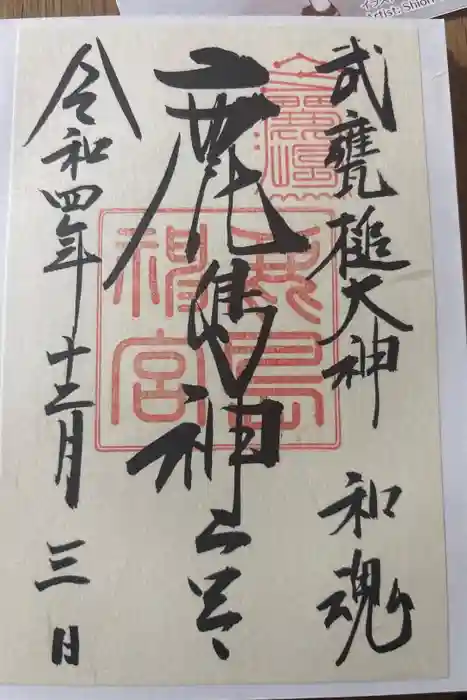 Artist: Shion
武甕槌大神 和魂
鹿島神宮
令和四年十二月三日
鹿島
神宮